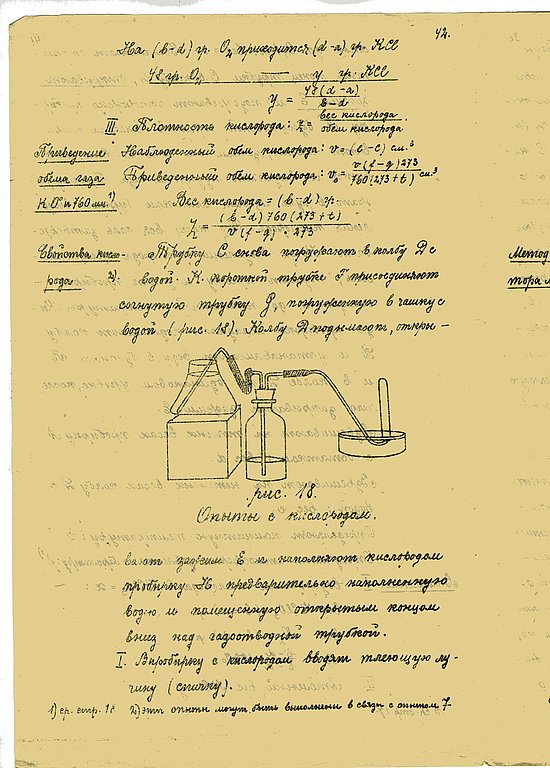 42.
На (b-d) гр. O₂ приходится (d-a) гр. KCl
48 гр. O₂ — y гр. KCl
y = 48(d-a) / b-d
III Плотность кислорода: z = вес кислорода / объем кислорода
Приведение Наблюденный объем кислорода: v = (b-c) см.³
объема газа Приведенный объем кислорода: v₀ = v(f-g)273 / 760(273+t) см³
к 0° и 760 мм ¹) Вес кислорода = (b-d) гр.
z = (b-d)760(273+t) / v(f-g)·273
Свойства кисло- Трубку C снова погружают в колбу D с
рода ²) водой. К короткой трубке F присоединяют
согнутую трубку G, погруженную в чашку с
водой (рис. 18). Колбу D поднимают, откры-
Метод
тора м
рис. 18.
Опыты с кислородом.
вают зажим E и наполняют кислородом
пробирку H предварительно наполненную
водою и помещенную открытым концом
вниз над газоотводной трубкой.
I. В пробирку с кислородом вводят тлеющую лу-
чину (спичку).
1) ср. стр. 18 2) эти опыты могут быть выполнены в связи с опытом 7-